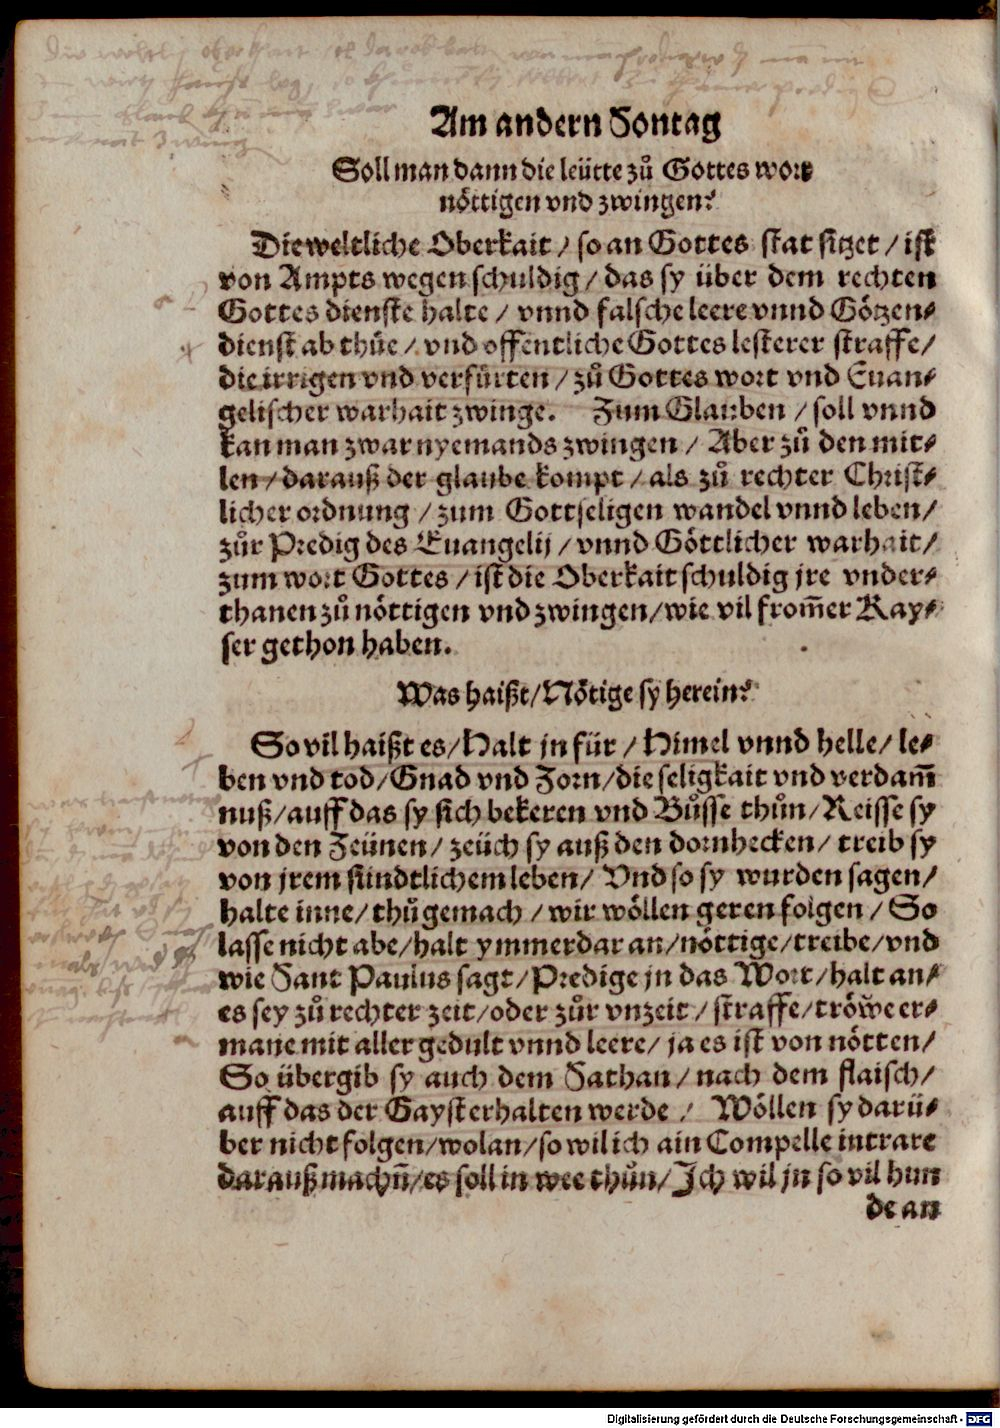 Am andern Sontag
Soll man dann die leütte zů Gottes wort
nöttigen vnd zwingen?
Die weltliche Oberkait / so an Gottes stat sitzet / ist
von Ampts wegen schuldig / das sy über dem rechten
Gottes dienste halte / vnnd falsche leere vnnd Götzen-
dienst ab thüe / vnd offentliche Gottes lesterer straffe /
die irrigen vnd verfürten / zů Gottes wort vnd Euan-
gelischer warhait zwinge. Zum Glauben / soll vnnd
kan man zwar nyemands zwingen / Aber zů den mit-
len / darauß der glaube kompt / als zů rechter Christ-
licher ordnung / zum Gottseligen wandel vnnd leben /
zůr Predig des Euangelij / vnnd Göttlicher warhait /
zum wort Gottes / ist die Oberkait schuldig jre vnder-
thanen zů nöttigen vnd zwingen / wie vil from̄er Kay-
ser gethon haben.
Was haißt / Nötige sy herein?
So vil haißt es / Halt jn für / Himel vnnd helle / le-
ben vnd tod / Gnad vnd Zorn / die seligkait vnd verdam̄
nuß / auff das sy sich bekeren vnd Bůsse thůn / Reisse sy
von den Zeünen / zeüch sy auß den dornhecken / treib sy
von jrem sündtlichem leben / Vnd so sy wurden sagen /
halte inne / thů gemach / wir wöllen geren folgen / So
lasse nicht abe / halt ymmerdar an / nöttige / treibe / vnd
wie Sant Paulus sagt / Predige jn das Wort / halt an-
es sey zů rechter zeit / oder zůr vnzeit / straffe / tröwe er-
mane mit aller gedult vnnd leere / ja es ist von nötten /
So übergib sy auch dem Sathan / nach dem flaisch /
auff das der Gayst erhalten werde / Wöllen sy darü-
ber nicht folgen / wolan / so wil ich ain Compelle intrare
darauß machn̄ / es soll in wee thůn / Jch wil jn so vil hun
de an
Digitalisierung gefördert durch die Deutsche Forschungsgemeinschaft - DFG